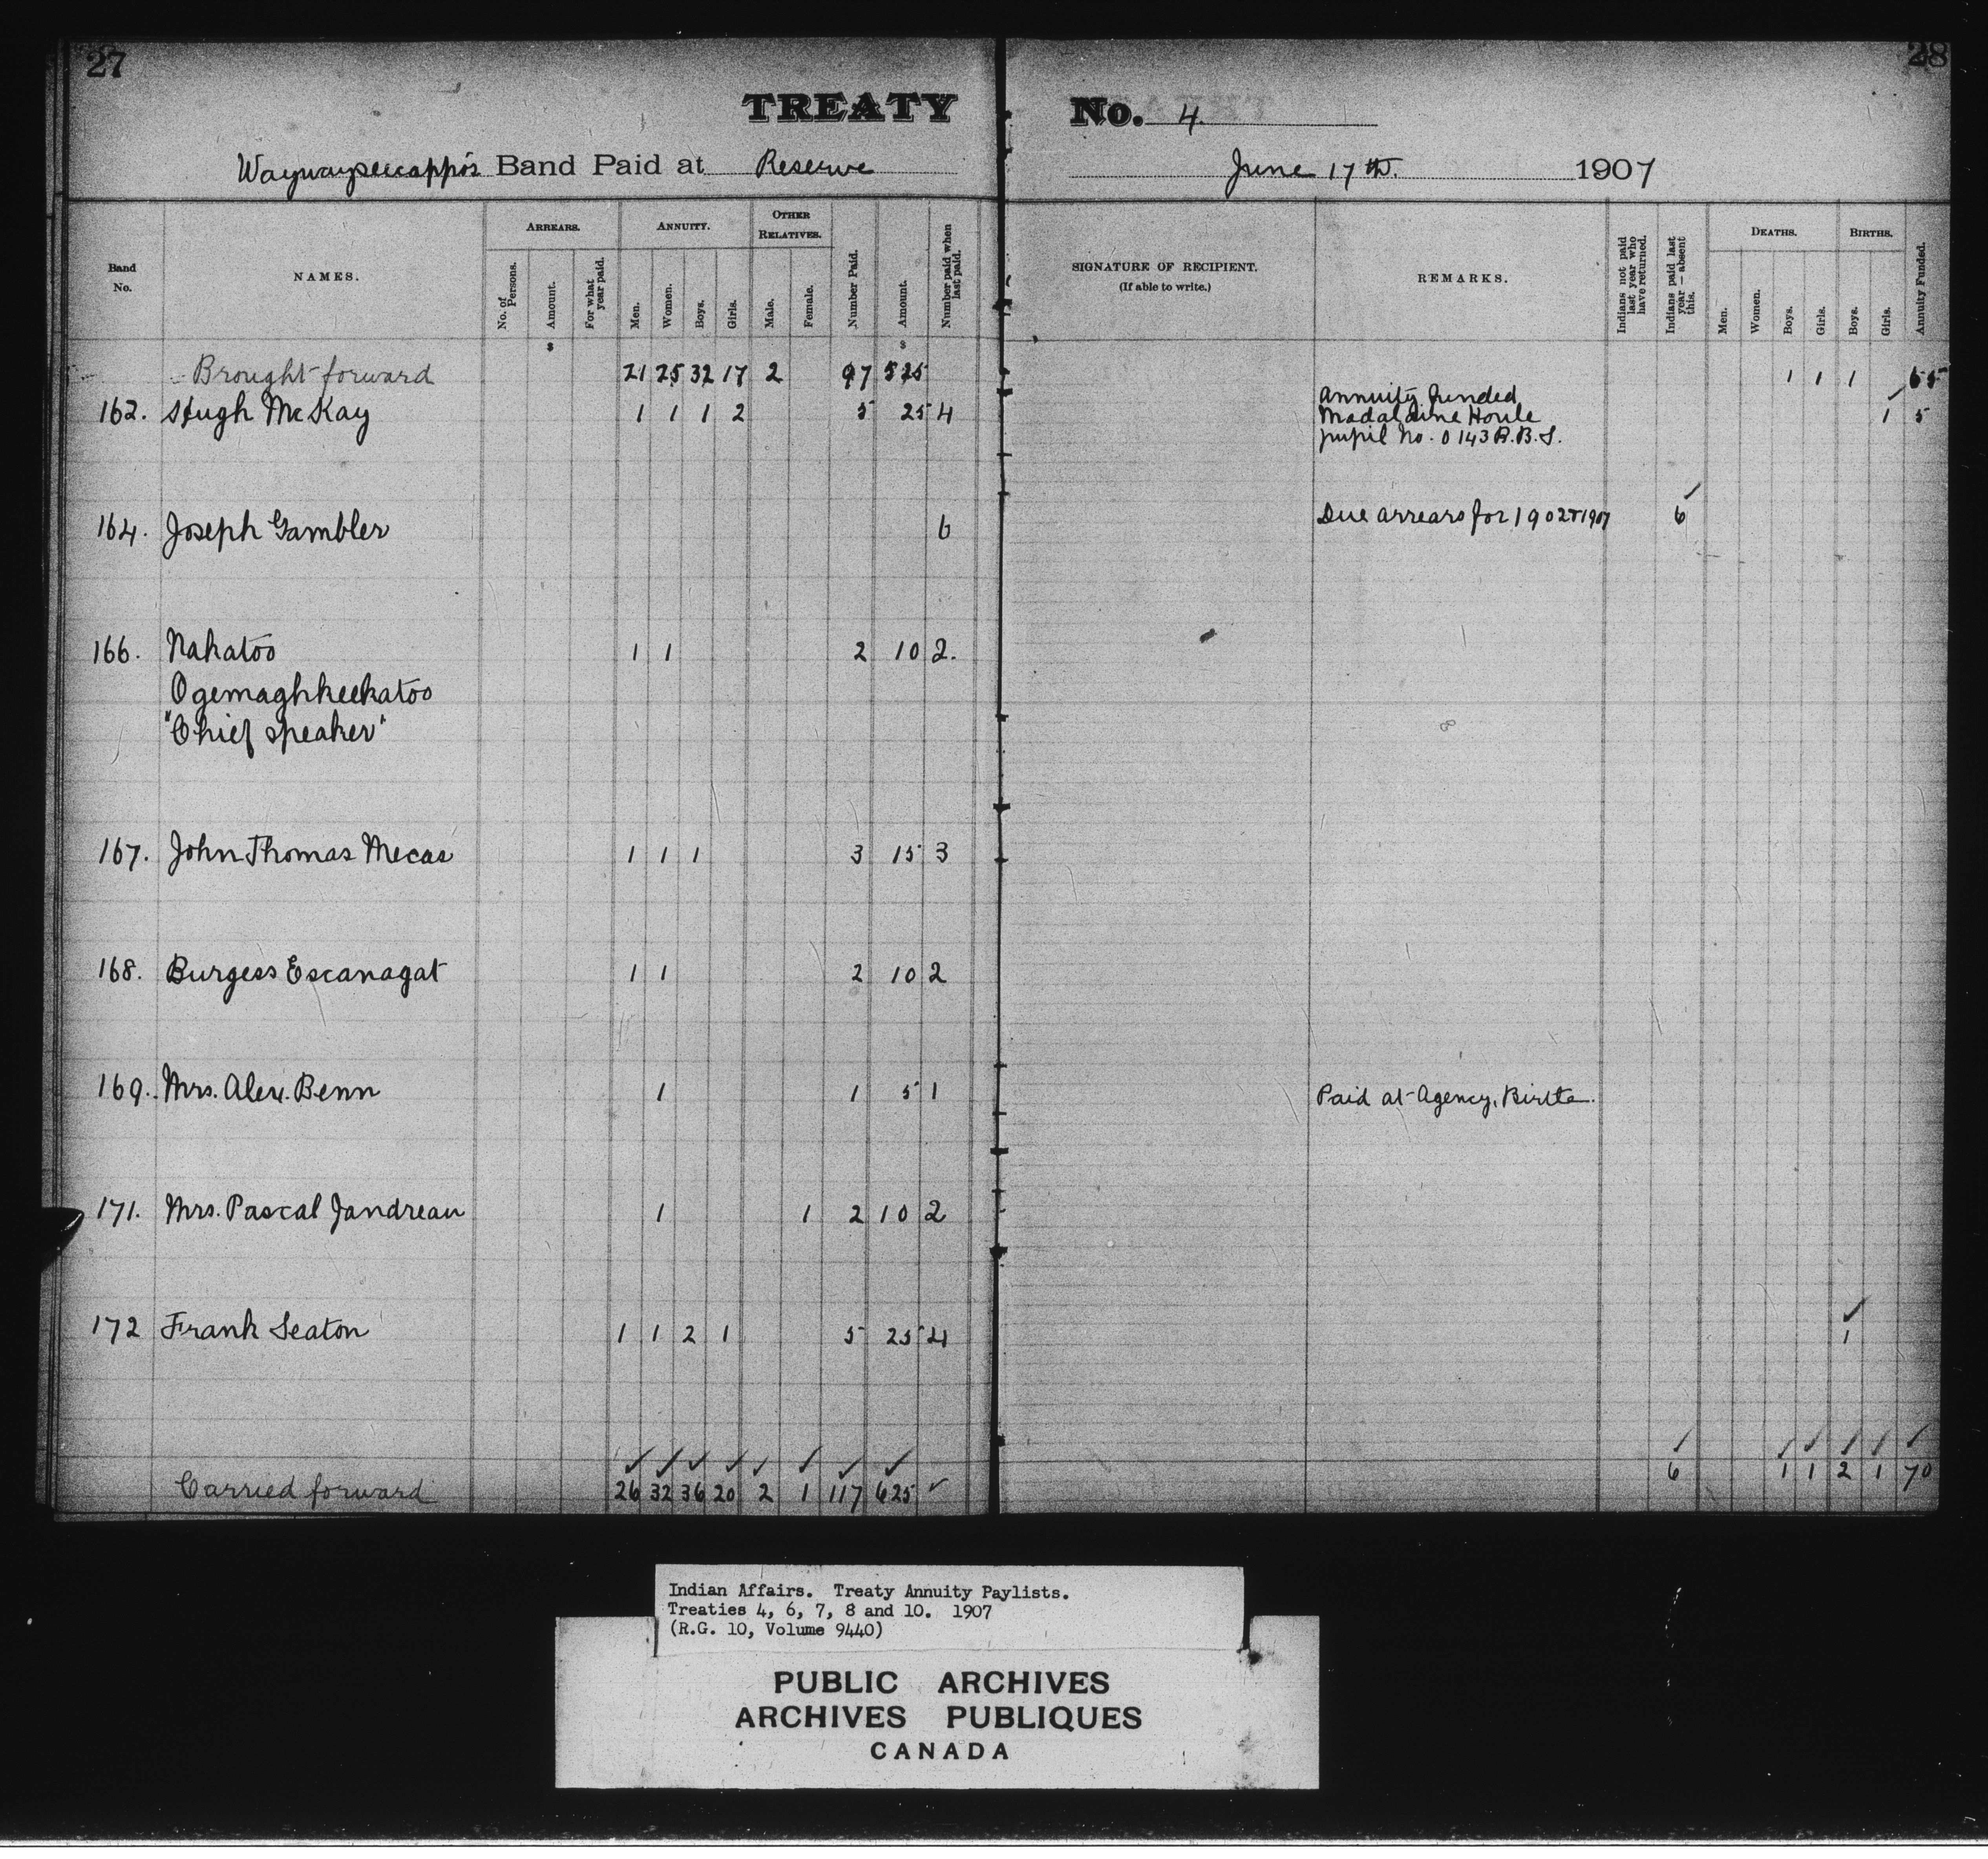 27
28
TREATY No. 4.
Waywayseecappo's Band Paid at Reserve June 17th. 1907
Band No. NAMES. ARREARS. No. of Persons. Amount. For what year paid. ANNUITY. Men. Women. Boys. Girls. OTHER RELATIVES. Male. Female. Number Paid. Amount. Number paid when last paid. SIGNATURE OF RECIPIENT. (If able to write.) REMARKS. Indians not paid last year who have returned. Indians paid last year — absent this. DEATHS. Men. Women. Boys. Girls. BIRTHS. Boys. Girls. Annuity Funded.
$ $
Brought forward 21 25 32 17 2 97 525 1 1 1 65
162. Hugh McKay 1 1 1 2 5 25 4 Annuity funded 1 5
Madalaine Houle
pupil No. 0143 R.B.S.
164. Joseph Gambler 6 Due arrears for 1902 & 1907 6
166. Nakatoo 1 1 2 10 2.
Ogemaghkeekatoo
"Chief Speaker"
167. John Thomas Mecas 1 1 1 3 15 3
168. Burgess Escanagat 1 1 2 10 2
169. Mrs. Alex. Benn 1 1 5 1 Paid at Agency, Birtle.
171. Mrs. Pascal Jandreau 1 1 2 10 2
172 Frank Seaton 1 1 2 1 5 25 4 1
Carried forward 26 32 36 20 2 1 117 625 6 1 1 2 1 70
Indian Affairs. Treaty Annuity Paylists.
Treaties 4, 6, 7, 8 and 10. 1907
(R.G. 10, Volume 9440)
PUBLIC ARCHIVES
ARCHIVES PUBLIQUES
CANADA